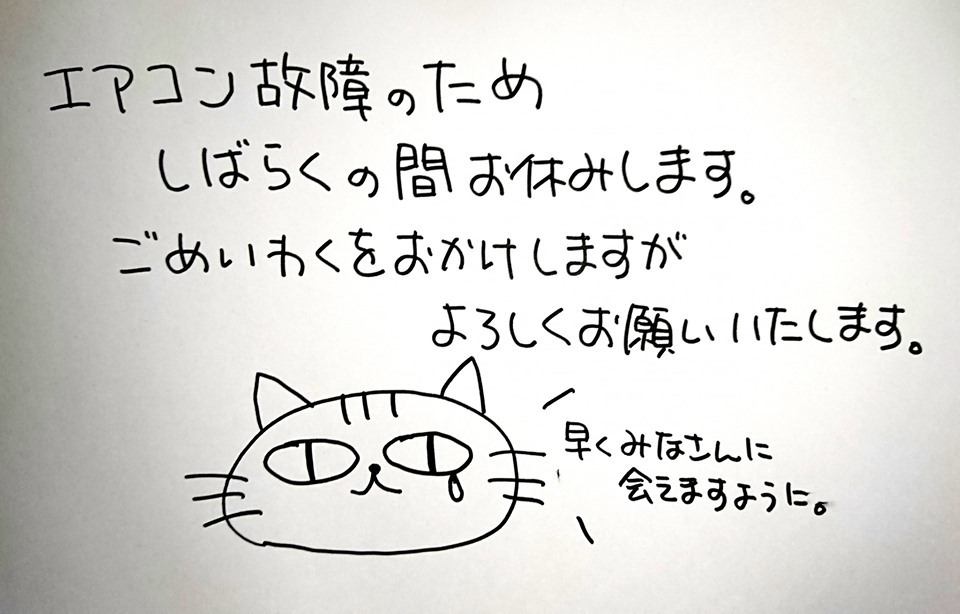 エアコン故障のため
しばらくの間お休みします。
ごめいわくをおかけしますが
よろしくお願いいたします。
早くみなさんに
会えますように。